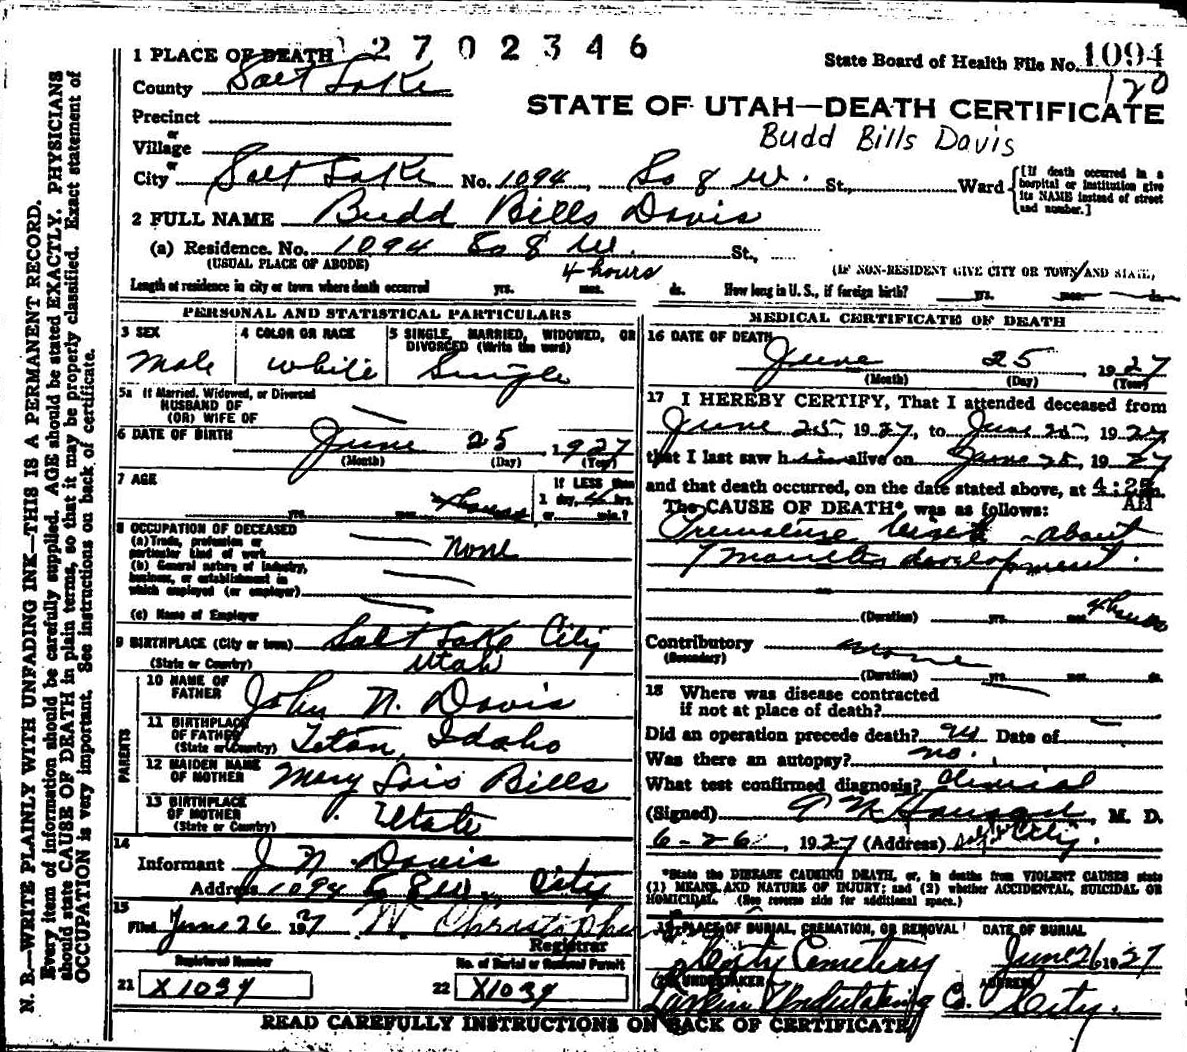 1 PLACE OF DEATH 2702346
State Board of Health File No. 1094
120
County Salt Lake
STATE OF UTAH—DEATH CERTIFICATE
Precinct
Budd Bills Davis
or
Village
or
City Salt Lake No. 1094 So 8 W. St., Ward
[If death occurred in a
hospital or institution give
its NAME instead of street
and number.]
2 FULL NAME Budd Bills Davis
(a) Residence. No. 1094 So 8 W. St.,
(USUAL PLACE OF ABODE)
(IF NON-RESIDENT GIVE CITY OR TOWN AND STATE,
4 hours
Length of residence in city or town where death occurred yrs. mos. ds. How long in U. S., if foreign birth? yrs. mos. ds.
PERSONAL AND STATISTICAL PARTICULARS
3 SEX
Male
4 COLOR OR RACE
White
5 SINGLE, MARRIED, WIDOWED, OR
DIVORCED (Write the word)
Single
5a If Married, Widowed, or Divorced
HUSBAND OF
(OR) WIFE OF
6 DATE OF BIRTH June 25, 1927
(Month) (Day) (Year)
7 AGE
yrs. mos. 4 hours
If LESS than
1 day, 4 hrs.
or min.?
8 OCCUPATION OF DECEASED
(a) Trade, profession or
particular kind of work none
(b) General nature of industry,
business, or establishment in
which employed (or employer)
(c) Name of Employer
9 BIRTHPLACE (City or town) Salt Lake City
(State or Country) Utah
PARENTS
10 NAME OF
FATHER John N. Davis
11 BIRTHPLACE
OF FATHER
(State or Country) Teton, Idaho
12 MAIDEN NAME
OF MOTHER Mary Lois Bills
13 BIRTHPLACE
OF MOTHER
(State or Country) Utah
14
Informant J. N. Davis
Address 1094 So 8 W., City
15
Filed June 26 1927 W. Christophe
Registrar
Registered Number
21 X1034
No. of Burial or Removal Permit
22 X1034
MEDICAL CERTIFICATE OF DEATH
16 DATE OF DEATH
June 25, 1927
(Month) (Day) (Year)
17 I HEREBY CERTIFY, That I attended deceased from
June 25, 1927, to June 25, 1927
that I last saw him alive on June 25, 1927
and that death occurred, on the date stated above, at 4:25 m.
AM
The CAUSE OF DEATH*, was as follows:
Premature birth - about
7 months development.
(Duration) yrs. mos. 4 hours
Contributory none
(Secondary)
(Duration) yrs. mos. ds.
18 Where was disease contracted
if not at place of death?
Did an operation precede death? no Date of
Was there an autopsy? no.
What test confirmed diagnosis? Clinical
(Signed) M. D.
6-26, 1927 (Address) City.
*State the DISEASE CAUSING DEATH, or, in deaths from VIOLENT CAUSES state
(1) MEANS AND NATURE OF INJURY; and (2) whether ACCIDENTAL, SUICIDAL OR
HOMICIDAL. (See reverse side for additional space.)
19 PLACE OF BURIAL, CREMATION, OR REMOVAL DATE OF BURIAL
City Cemetery June 26 1927
20 UNDERTAKER ADDRESS
Larkin Undertaking Co. City.
READ CAREFULLY INSTRUCTIONS ON BACK OF CERTIFICATE
N. B.—WRITE PLAINLY WITH UNFADING INK—THIS IS A PERMANENT RECORD.
Every item of information should be carefully supplied. AGE should be stated EXACTLY. PHYSICIANS
should state CAUSE OF DEATH in plain terms, so that it may be properly classified. Exact statement of
OCCUPATION is very important. See instructions on back of certificate.